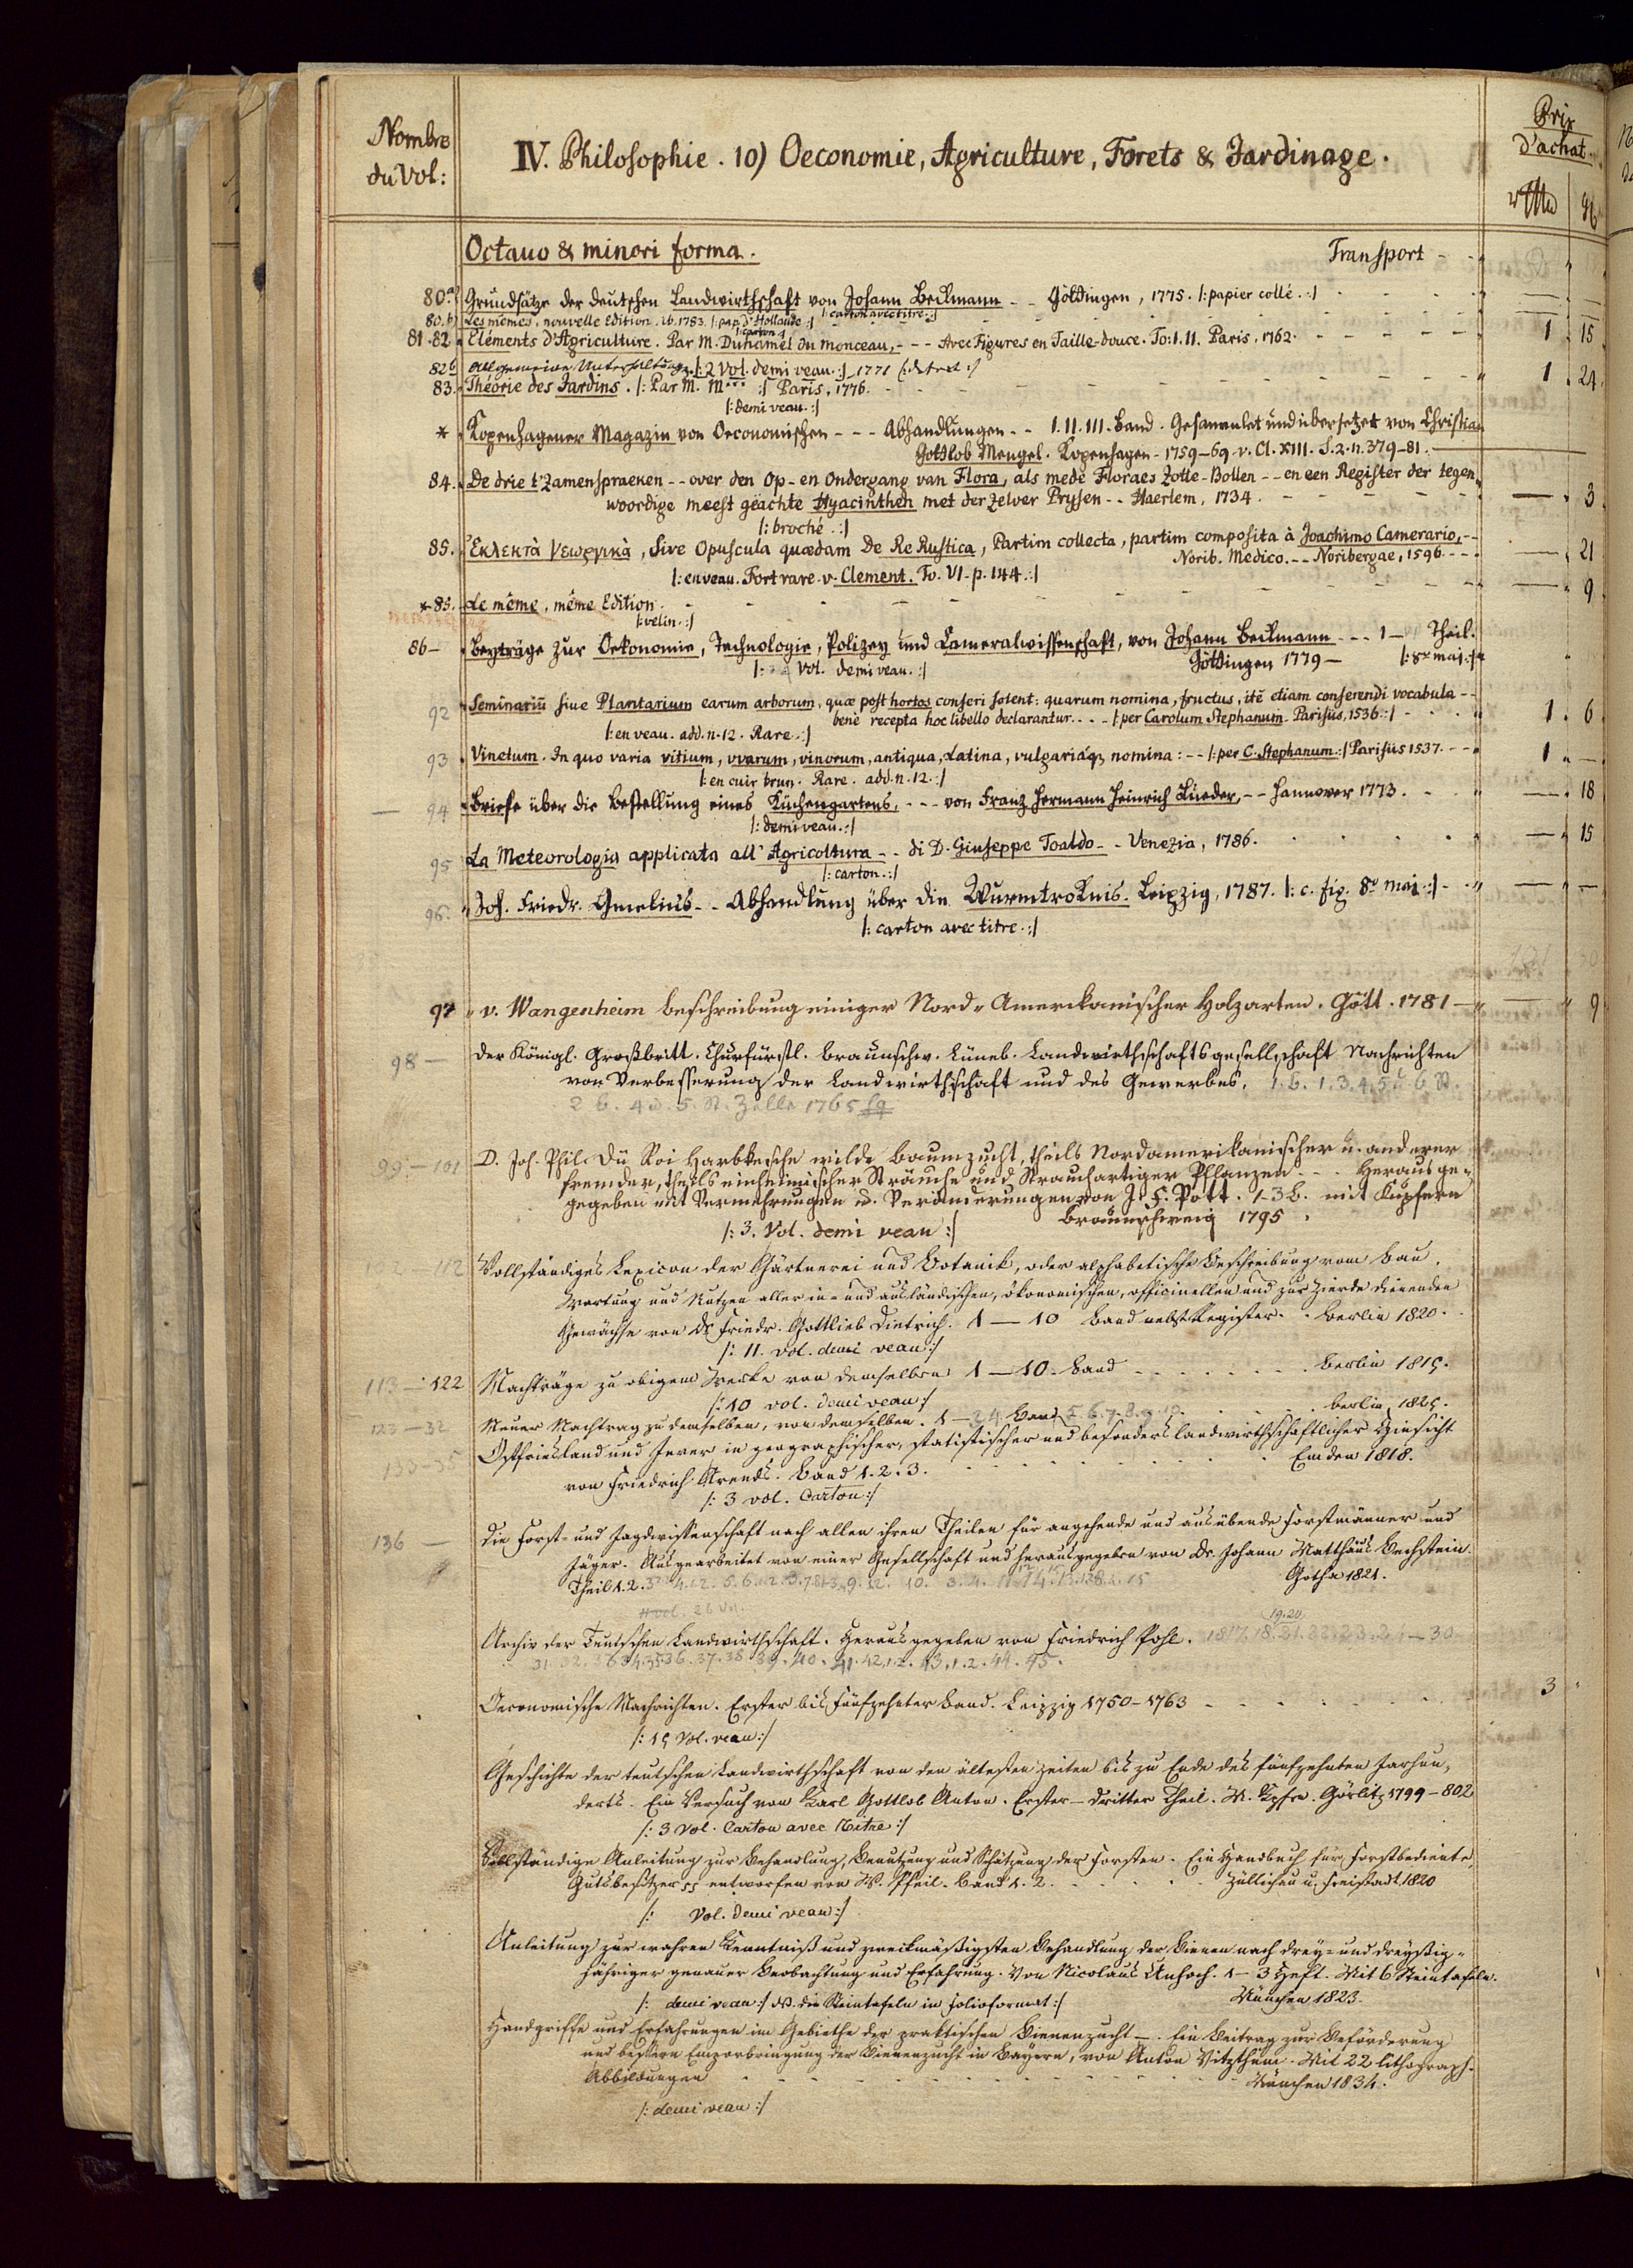 Nombre
du Vol:
IV. Philosophie. 10) Oeconomie, Agriculture, Forets & Jardinage.
Prix
d'achat.
Octauo & minori forma. Transport - -
80.a) Grundsätze der deutschen Landwirthschaft von Johann Beckmann - - Göttingen, 1775. |: papier collé. :|
80.b) Les mêmes, nouvelle Edition. ib. 1783. |: pap. d'Hollande :| |: carton avec titre. :|
81.82. Eléments d'Agriculture. Par M. Duhamel du Monceau, - - - Avec Figures en Taille-douce. To: I. II. Paris, 1762. 1 15
|: 2 Vol. demi veau. :| 1771
83. Théorie des Jardins. |: Par M. M*** :| Paris, 1776. 1 24
|: demi veau. :|
* Kopenhagener Magazin von Oeconomischen - - - Abhandlungen - - I. II. III. Band. Gesammlet und übersetzet von Christian
Gottlob Mengel. Kopenhagen - 1759-69. v. Cl. XIII. S. 2. n. 379-81.
84. De drie t'Zamenspraeken - - over den Op- en Ondergang van Flora, als mede Floraes Zotte-Bollen - - en een Register der tegen,
woordige meest geächte Hyacinthen met der zelver Prysen - - Haerlem, 1734. 3
|: broché. :|
85. Ἐκλεκτὰ γεωργικὰ, sive Opuscula quædam De Re Rustica, Partim collecta, partim composita à Joachimo Camerario, - -
Norib. Medico. - - Noribergae, 1596. - - 21
|: en veau. Fort rare. v. Clement. To. VI. p. 144. :|
* 85. Le même, même Edition. 9
|: velin. :|
86- Beyträge zur Oekonomie, Technologie, Polizey und Cameralwissenschaft, von Johann Beckmann - - - 1 - Theil.
|: Vol. demi veau. :| Göttingen 1779 - |: 8vo maj. :|
92 Seminariū siue Plantarium earum arborum, quæ post hortos conseri solent: quarum nomina, fructus, itē etiam conserendi vocabula - -
bene recepta hoc libello declarantur. - - - |: per Carolum Stephanum. Parisiis, 1536. :| 1 6
|: en veau. add. n. 12. Rare. :|
93 Vinetum. In quo varia vitium, vvarum, vinorum, antiqua, Latina, vulgariáq; nomina: - - |: per C. Stephanum. :| Parisiis 1537. - - 1 -
|: en cuir brun. Rare. add. n. 12. :|
94 Briefe über die Bestellung eines Küchengartens, - - - von Franz Hermann Heinrich Lueder, - - Hannover 1773. 18
|: demi veau. :|
95 La Meteorologia applicata all' Agricoltura - - di D. Giuseppe Toaldo - - Venezia, 1786. 15
|: carton. :|
96. Joh. Friedr. Gmelius - - Abhandlung über die Wurmtroknis. Leipzig, 1787. |: c. fig. 8º maj. :|
|: carton avec titre. :|
97 v. Wangenheim Beschreibung einiger Nord-Amerckanischer Holzarten. Gött. 1781 - 9
98 - Der Königl. Großbritt. Churfürstl. Braunschw. Lüneb. Landwirthschaftsgesellschaft Nachrichten
von Verbesserung der Landwirthschaft und des Gewerbes. 1. B. 1. 3. 4. 5 u. 6 St.
2 B. 4 u. 5. St. Zelle 1765
99-101 D. Joh. Phil. Dü Roi Harbkesche wilde Baumzucht, theils Nordamerikanischer u. anderer
fremder, theils einheimischer Sträuche und Strauchartiger Pflanzen - - - Herausge-
gegeben mit Vermehrungen u. Veränderungen von J. F. Pott. 1-3 B. mit Kupfern
Braunschweig 1795.
|: 3. Vol. demi veau :|
112 Vollständiges Lexicon der Gärtnerei und Botanik, oder alphabetische Beschreibung vom Bau,
Wartung und Nutzen aller in- und ausländischen, ökonomischen, officinellen und zur Zierde dienenden
Gewächse von Dr Friedr. Gottlieb Dietrich. 1 - 10 Band nebst Register. . Berlin 1820.
|: 11. vol. demi veau :|
113-122 Nachträge zu obigem Werke von demselben 1 - 10. Band - - - Berlin 1815.
|: 10 vol. demi veau :|
123-32 Neuer Nachtrag zu demselben, von demselben. 1 - 3.4. Band 5. 6. 7. 8. 9. 10. Berlin, 1825.
133-35 Ostfriesland und Jever in geographischer, statistischer und besonders landwirthschaftlicher Hinsicht
von Friedrich Arends. Band 1. 2. 3. Emden 1818.
|: 3 vol. Carton :|
136 - Die Forst- und Jagdwissenschaft nach allen ihren Theilen für angehende und ausübende Forstmänner und
Jäger. Ausgearbeitet von einer Gesellschaft und herausgegeben von Dr. Johann Matthäus Bechstein.
Theil 1. 2. Gotha 1821.
26 Vol.
Archiv der Teutschen Landwirthschaft. Herausgegeben von Friedrich Pohl. 1817. 18. 19. 20 21. 22. 23. 24 - 30
Oeconomische Nachrichten. Erster bis fünfzehnter Band. Leipzig 1750-1763 - 3
|: 15 Vol. veau :|
Geschichte der teutschen Landwirthschaft von den ältesten Zeiten bis zu Ende des fünfzehnten Jarhun,
derts. Ein Versuch von Karl Gottlob Anton. Erster - dritter Theil. M. Kpfrn. Görlitz 1799-802
|: 3 Vol. Carton avec Titre :|
Vollständige Anleitung zur Behandlung, Benutzung und Schätzung der Forsten. Ein Handbuch für Forstbediente,
Gutsbesitzer pp entworfen von W. Pfeil. Band 1. 2. Züllichau u. Freistadt 1820
|: Vol. demi veau :|
Anleitung zur wahren Kenntniß und zweckmäßigsten Behandlung der Bienen nach drey- und dreyßig-
jähriger genauer Beobachtung und Erfahrung. Von Nicolaus Unhoch. 1 - 3 Heft. Mit 6 Steintafeln.
|: demi veau :| NB. die Steintafeln in folioformat :| München 1823.
Handgriffe und Erfahrungen im Gebiethe der praktischen Bienenzucht -. Ein Beitrag zur Beförderung
und bessern Emporbringung der Bienenzucht in Bayern, von Anton Vitzthum. Mit 22 lithograph.
Abbildungen - - - München 1834.
|: demi veau :|